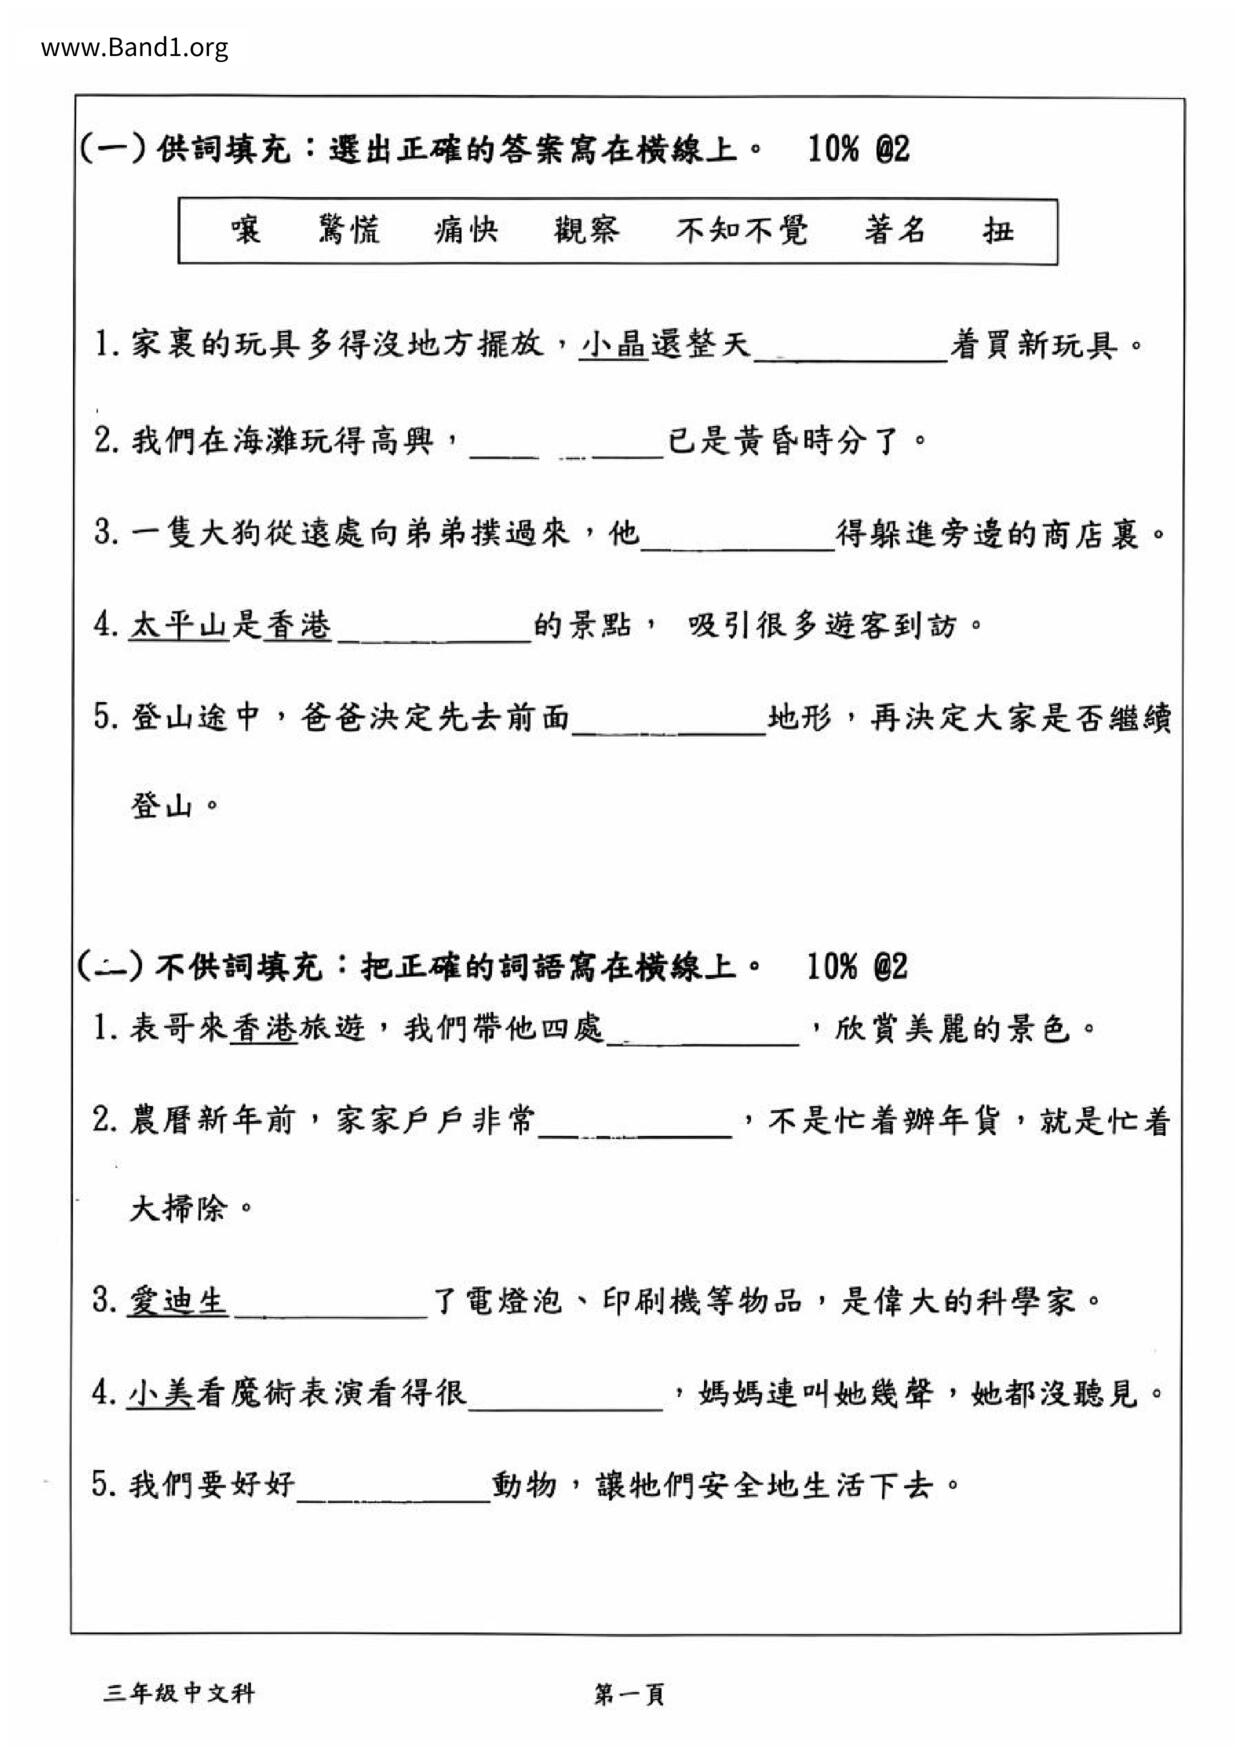 www.Band1.org
(一)供詞填充：選出正確的答案寫在橫線上。 10% @2
嚷 驚慌 痛快 觀察 不知不覺 著名 扭
1. 家裏的玩具多得沒地方擺放，小晶還整天__________着買新玩具。
2. 我們在海灘玩得高興，__________已是黃昏時分了。
3. 一隻大狗從遠處向弟弟撲過來，他__________得躲進旁邊的商店裏。
4. 太平山是香港__________的景點， 吸引很多遊客到訪。
5. 登山途中，爸爸決定先去前面__________地形，再決定大家是否繼續
登山。
(二)不供詞填充：把正確的詞語寫在橫線上。 10% @2
1. 表哥來香港旅遊，我們帶他四處__________，欣賞美麗的景色。
2. 農曆新年前，家家戶戶非常__________，不是忙着辦年貨，就是忙着
大掃除。
3. 愛迪生__________了電燈泡、印刷機等物品，是偉大的科學家。
4. 小美看魔術表演看得很__________，媽媽連叫她幾聲，她都沒聽見。
5. 我們要好好__________動物，讓牠們安全地生活下去。
三年級中文科 第一頁